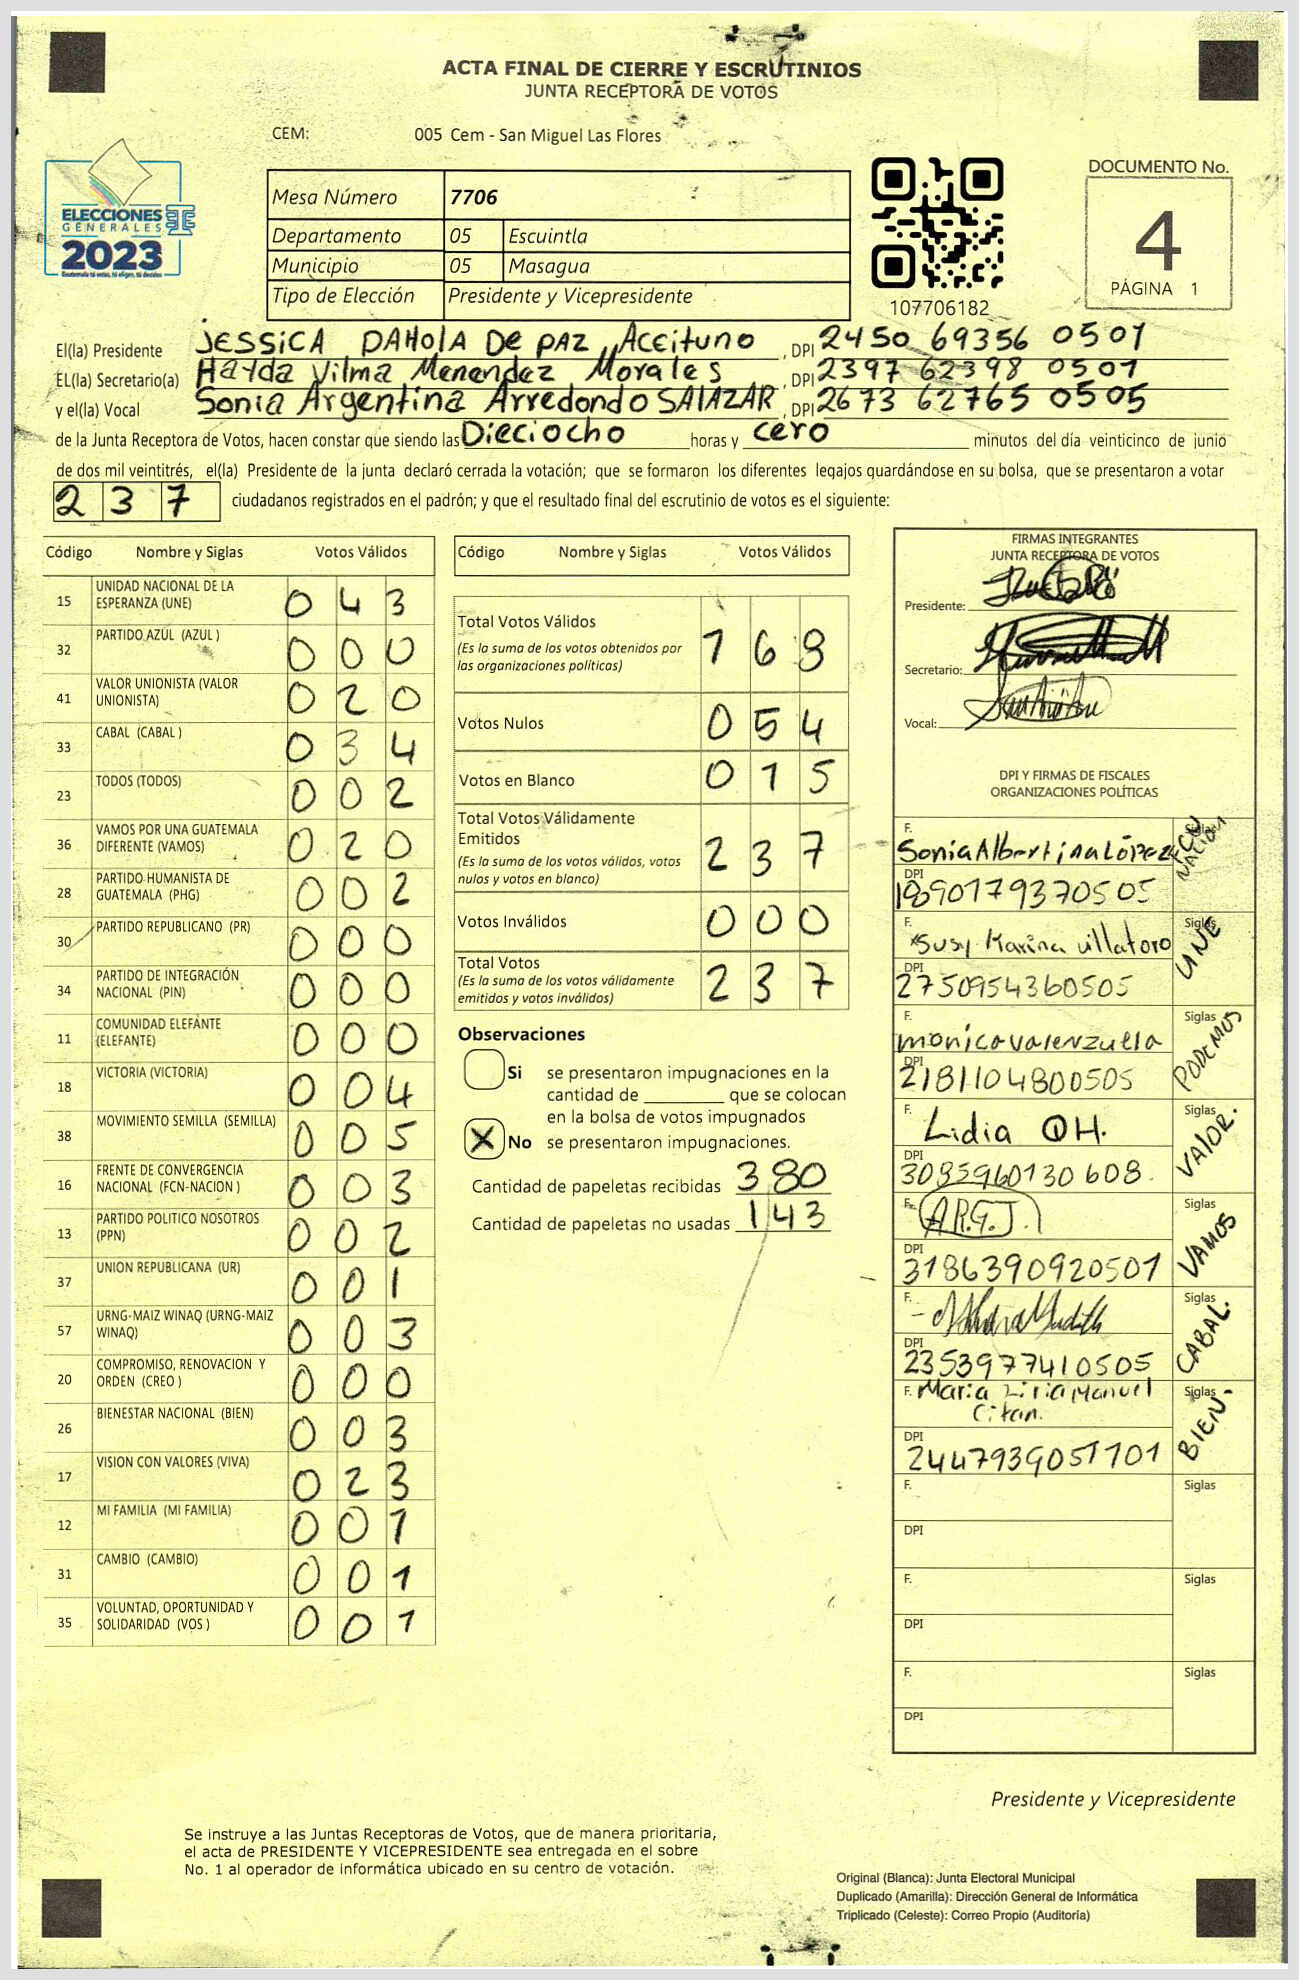 ACTA FINAL DE CIERRE Y ESCRUTINIOS
JUNTA RECEPTORA DE VOTOS
CEM: 005 Cem - San Miguel Las Flores
ELECCIONES
GENERALES
2023
Guatemala tú votas, tú eliges, tú decides
Mesa Número 7706
Departamento 05 Escuintla
Municipio 05 Masagua
Tipo de Elección Presidente y Vicepresidente
107706182
DOCUMENTO No.
4
PÁGINA 1
El(la) Presidente JESSICA PAHOLA DE PAZ Aceituno, DPI 2450 69356 0501
EL(la) Secretario(a) Hayda Vilma Menendez Morales, DPI 2397 62398 0501
y el(la) Vocal Sonia Argentina Arredondo SALAZAR, DPI 2673 62765 0505
de la Junta Receptora de Votos, hacen constar que siendo las Dieciocho horas y cero minutos del día veinticinco de junio
de dos mil veintitrés, el(la) Presidente de la junta declaró cerrada la votación; que se formaron los diferentes legajos guardándose en su bolsa, que se presentaron a votar
237 ciudadanos registrados en el padrón; y que el resultado final del escrutinio de votos es el siguiente:
Código Nombre y Siglas Votos Válidos
15 UNIDAD NACIONAL DE LA ESPERANZA (UNE) 0 4 3
32 PARTIDO AZUL (AZUL ) 0 0 0
41 VALOR UNIONISTA (VALOR UNIONISTA) 0 2 0
33 CABAL (CABAL ) 0 3 4
23 TODOS (TODOS) 0 0 2
36 VAMOS POR UNA GUATEMALA DIFERENTE (VAMOS) 0 2 0
28 PARTIDO HUMANISTA DE GUATEMALA (PHG) 0 0 2
30 PARTIDO REPUBLICANO (PR) 0 0 0
34 PARTIDO DE INTEGRACIÓN NACIONAL (PIN) 0 0 0
11 COMUNIDAD ELEFANTE (ELEFANTE) 0 0 0
18 VICTORIA (VICTORIA) 0 0 4
38 MOVIMIENTO SEMILLA (SEMILLA) 0 0 5
16 FRENTE DE CONVERGENCIA NACIONAL (FCN-NACION ) 0 0 3
13 PARTIDO POLITICO NOSOTROS (PPN) 0 0 2
37 UNION REPUBLICANA (UR) 0 0 1
57 URNG-MAIZ WINAQ (URNG-MAIZ WINAQ) 0 0 3
20 COMPROMISO, RENOVACION Y ORDEN (CREO ) 0 0 0
26 BIENESTAR NACIONAL (BIEN) 0 0 3
17 VISION CON VALORES (VIVA) 0 2 3
12 MI FAMILIA (MI FAMILIA) 0 0 1
31 CAMBIO (CAMBIO) 0 0 1
35 VOLUNTAD, OPORTUNIDAD Y SOLIDARIDAD (VOS ) 0 0 1
Código Nombre y Siglas Votos Válidos
Total Votos Válidos 1 6 8
(Es la suma de los votos obtenidos por
las organizaciones políticas)
Votos Nulos 0 5 4
Votos en Blanco 0 1 5
Total Votos Válidamente
Emitidos 2 3 7
(Es la suma de los votos válidos, votos
nulos y votos en blanco)
Votos Inválidos 0 0 0
Total Votos 2 3 7
(Es la suma de los votos válidamente
emitidos y votos inválidos)
Observaciones
Si se presentaron impugnaciones en la
cantidad de ________ que se colocan
en la bolsa de votos impugnados
X No se presentaron impugnaciones.
Cantidad de papeletas recibidas 380
Cantidad de papeletas no usadas 143
FIRMAS INTEGRANTES
JUNTA RECEPTORA DE VOTOS
Presidente:
Secretario:
Vocal:
DPI Y FIRMAS DE FISCALES
ORGANIZACIONES POLÍTICAS
F. Sonia Albertina López Siglas FCN NACION
DPI 1890179370505
F. Susy Karina Villatoro Siglas UNE
DPI 2750954360505
F. monica valenzuela Siglas PODEMOS
DPI 2181104800505
F. Lidia QH. Siglas VALOR.
DPI 3085960130608.
F. A.R.G.J. Siglas VAMOS
DPI 3186390920501
F. Siglas CABAL.
DPI 2353977410505
F. Maria Liria Manuel Citan. Siglas BIEN-
DPI 2447939051101
F. Siglas
DPI
F. Siglas
DPI
F. Siglas
DPI
Presidente y Vicepresidente
Se instruye a las Juntas Receptoras de Votos, que de manera prioritaria,
el acta de PRESIDENTE Y VICEPRESIDENTE sea entregada en el sobre
No. 1 al operador de informática ubicado en su centro de votación.
Original (Blanca): Junta Electoral Municipal
Duplicado (Amarilla): Dirección General de Informática
Triplicado (Celeste): Correo Propio (Auditoría)